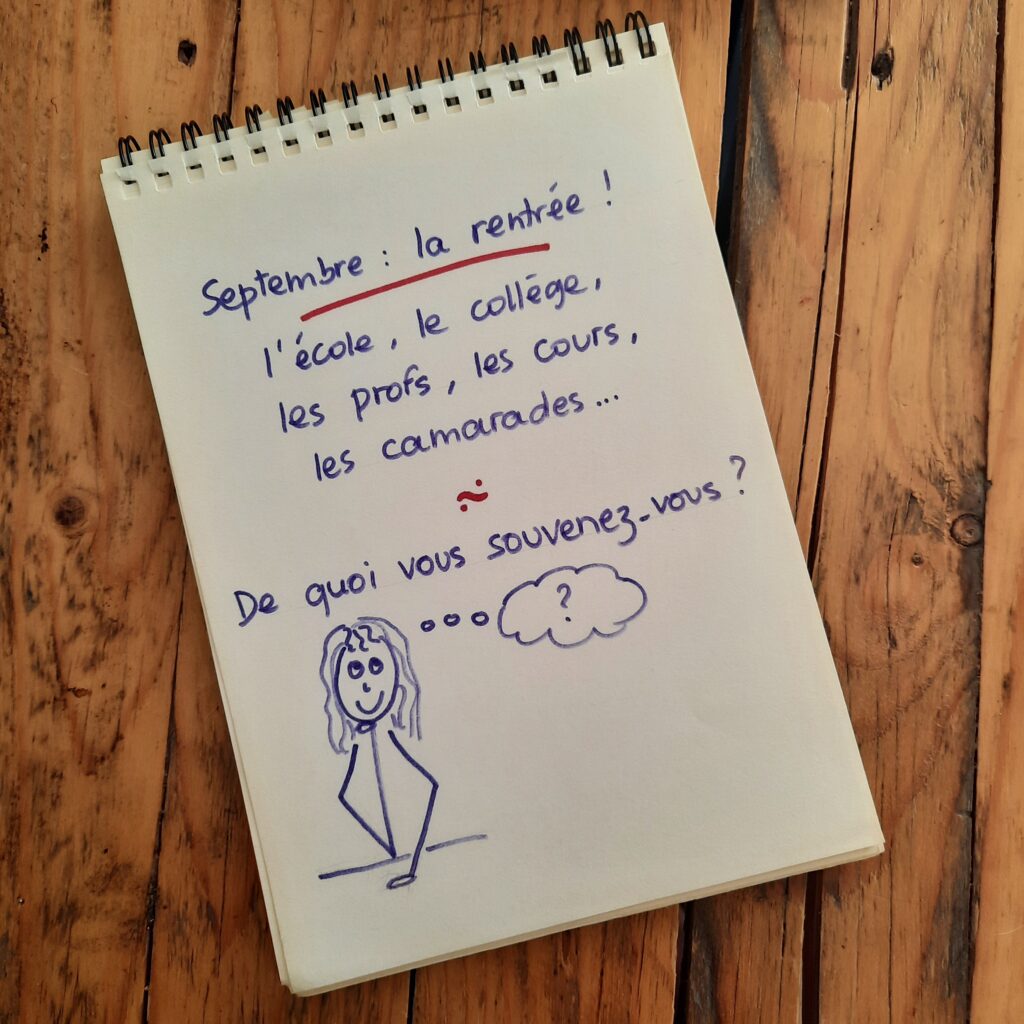 Septembre : la rentrée !
l'école, le collège,
les profs, les cours,
les camarades...
~
De quoi vous souvenez-vous ?
?